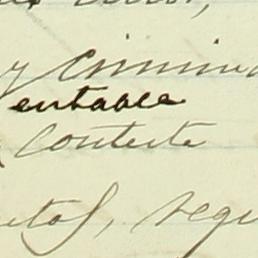 y crimina
entable
conteste
etos, segu